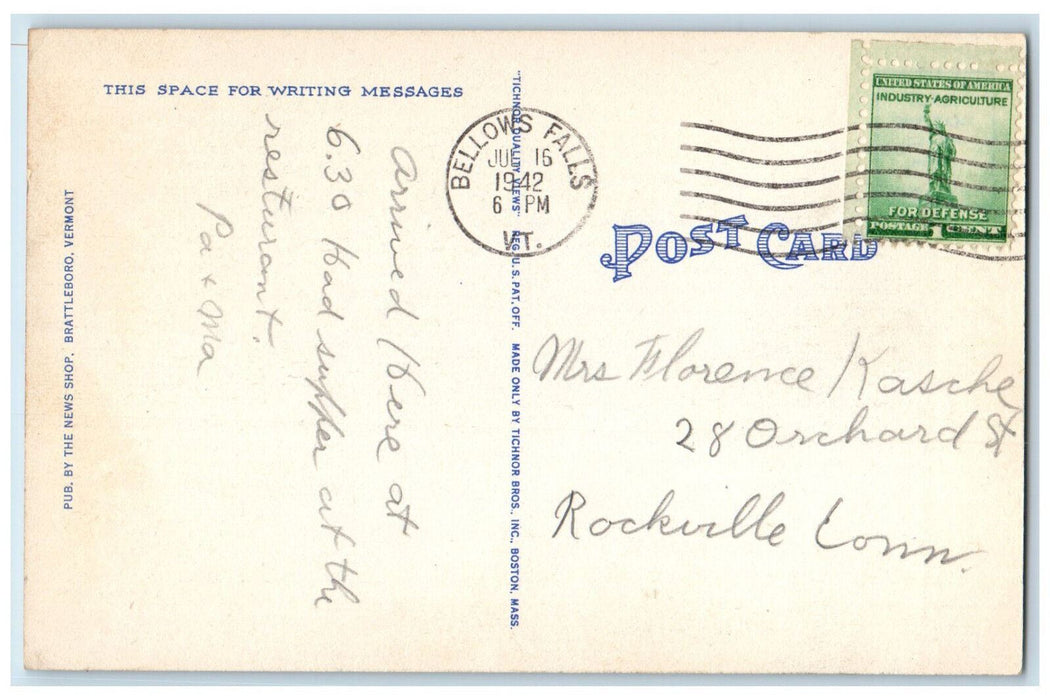 THIS SPACE FOR WRITING MESSAGES
Arrived Here at
6.30 Had supper at the
resturant.
Pa + Ma
PUB. BY THE NEWS SHOP, BRATTLEBORO, VERMONT
"TICHNOR QUALITY VIEWS" REG. U. S. PAT. OFF. MADE ONLY BY TICHNOR BROS., INC., BOSTON, MASS.
BELLOWS FALLS
JUL 16
1942
6 PM
VT.
UNITED STATES OF AMERICA
INDUSTRY·AGRICULTURE
FOR DEFENSE
POSTAGE 1 CENT
POST CARD
Mrs Florence Kasche
28 Orchard St
Rockville Conn.